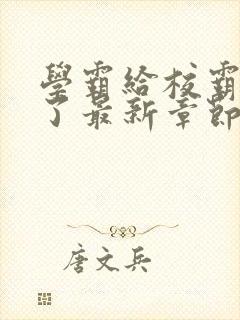 學霸給校霸
了最新章節
唐文兵